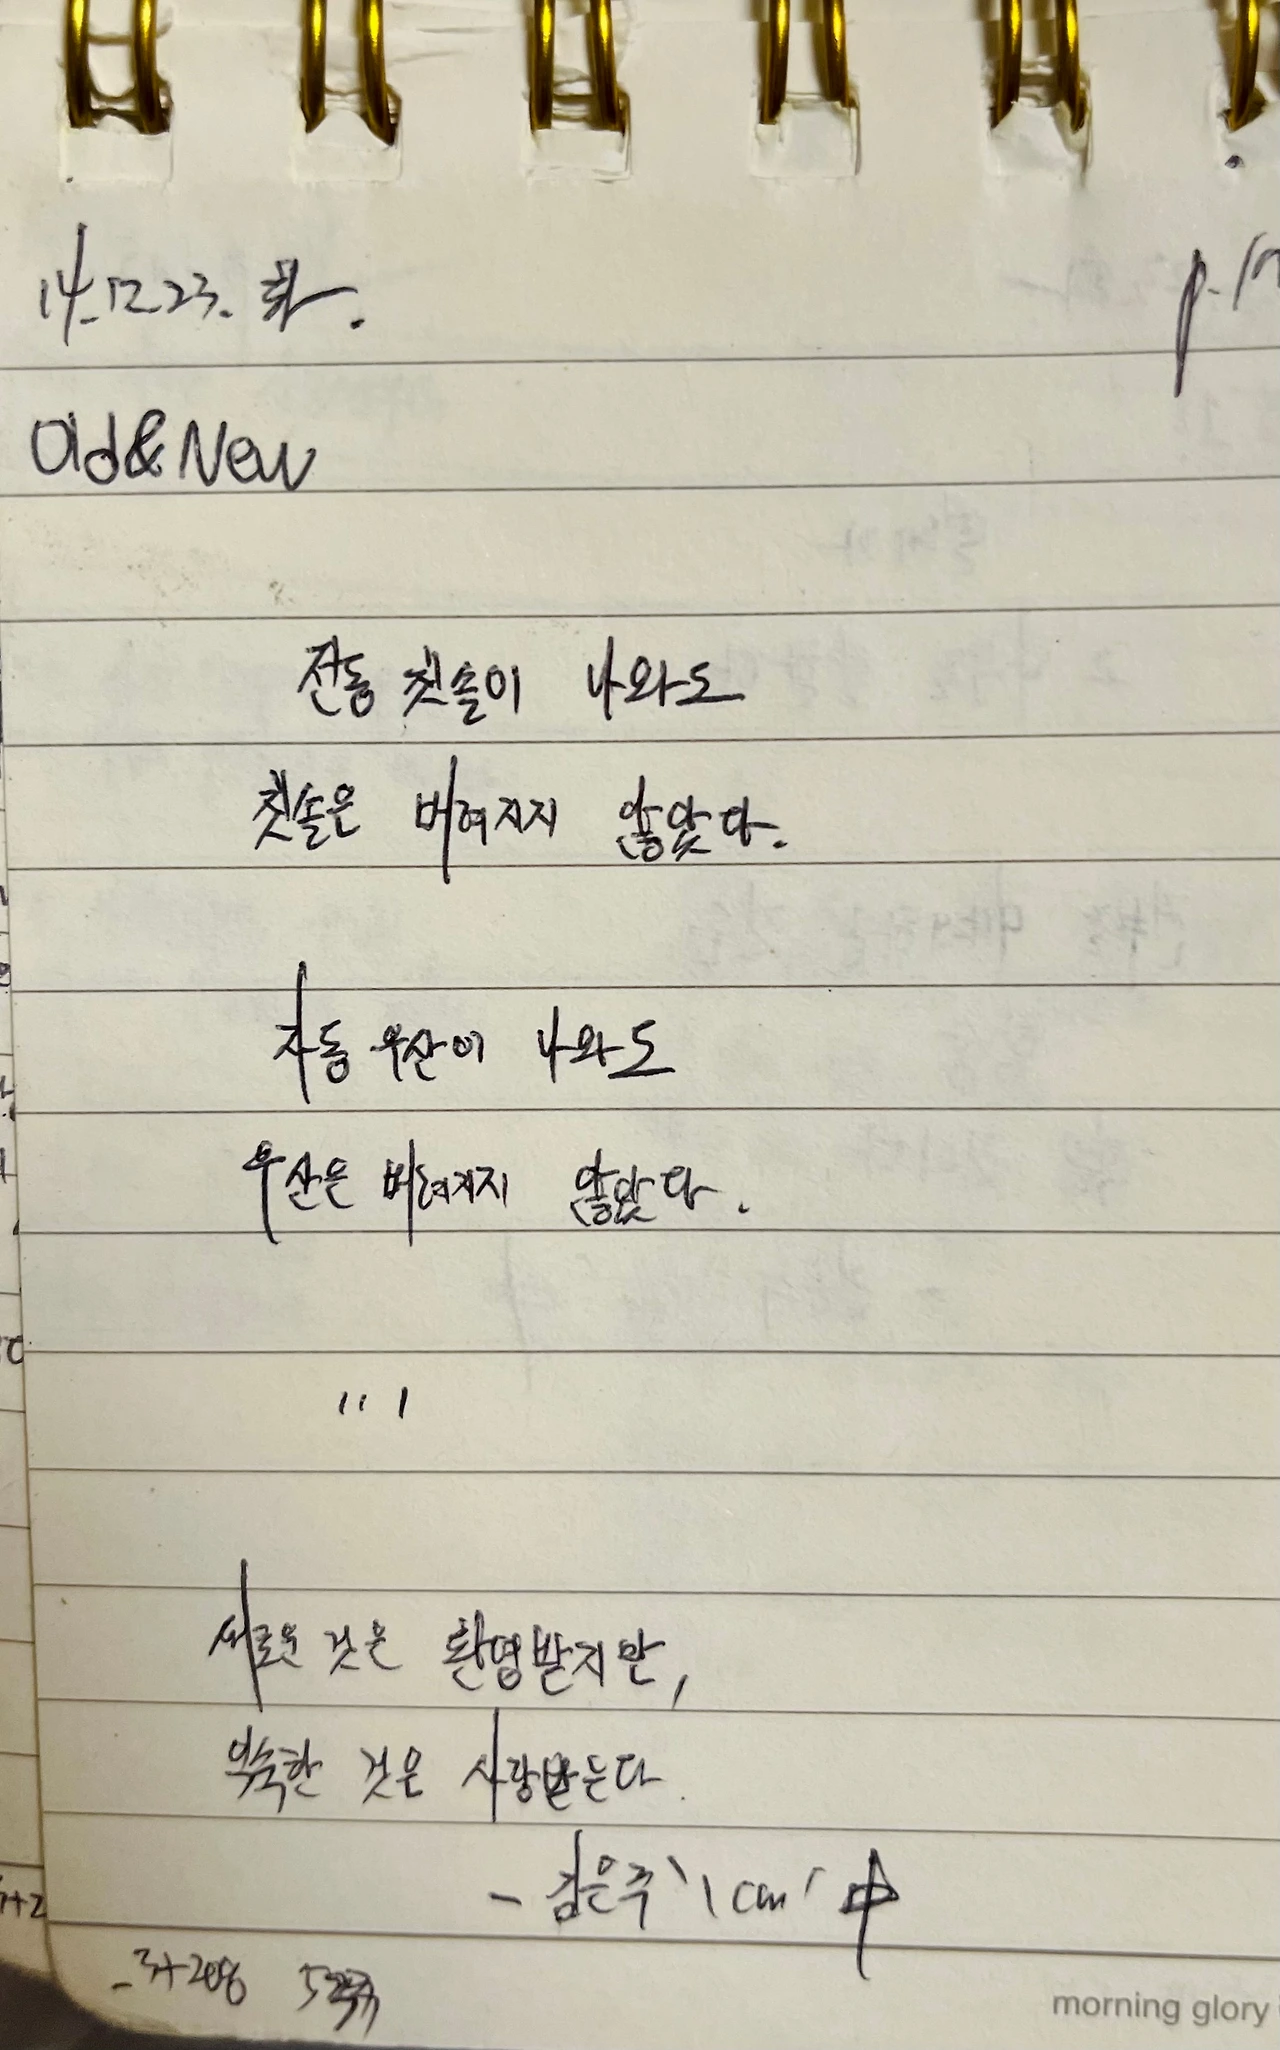 14.12.23. 화.
Old & New
전동 칫솔이 나와도
칫솔은 버려지지 않았다.
자동 우산이 나와도
우산은 버려지지 않았다.
새로운 것은 환영받지만,
익숙한 것은 사랑받는다.
- 김은주 '1cm' 中
morning glory